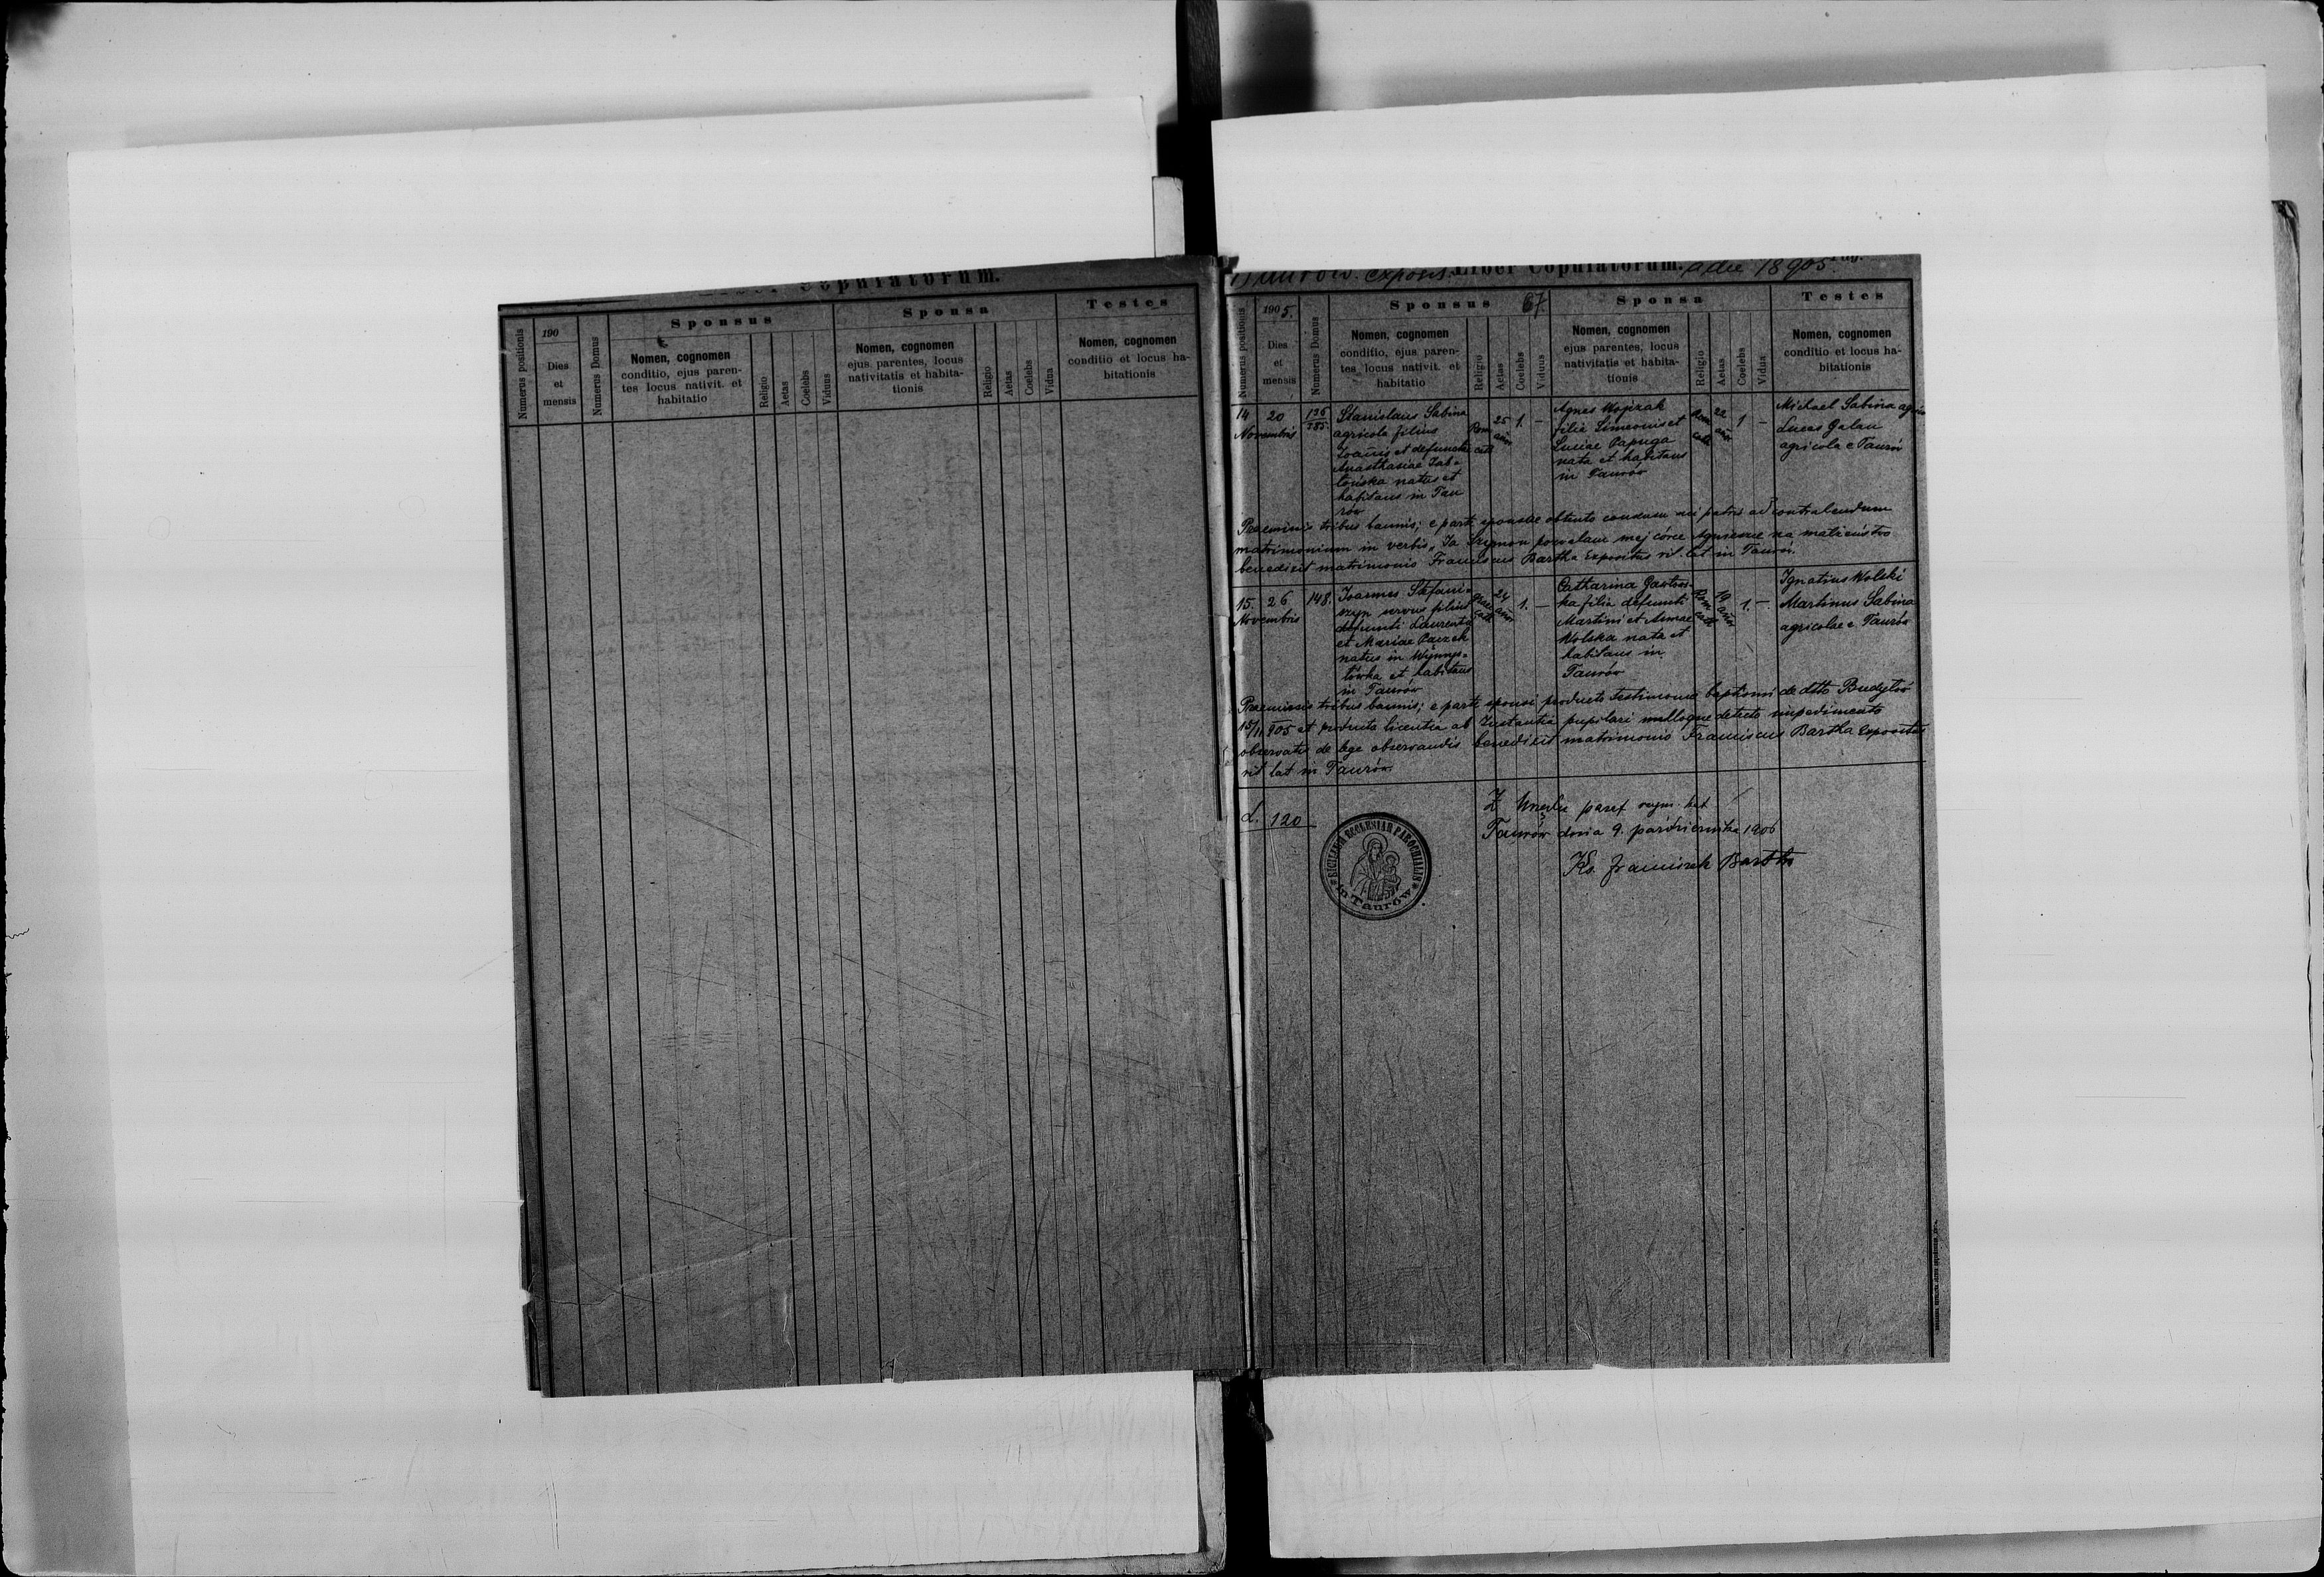 Copulatorum.
Numerus positionis
190
Dies
et
mensis
Numerus Domus
Sponsus
Nomen, cognomen
conditio, ejus paren-
tes locus nativit. et
habitatio
Religio
Aetas
Coelebs
Viduus
Sponsa
Nomen, cognomen
ejus parentes, locus
nativitatis et habita-
tionis
Religio
Aetas
Coelebs
Vidua
Testes
Nomen, cognomen
conditio et locus ha-
bitationis
Taurów exposit. Liber Copulatorum. a die 18 905.
Numerus positionis
1905.
Dies
et
mensis
Numerus Domus
Sponsus
67.
Nomen, cognomen
conditio, ejus paren-
tes locus nativit. et
habitatio
Religio
Aetas
Coelebs
Viduus
Sponsa
Nomen, cognomen
ejus parentes, locus
nativitatis et habita-
tionis
Religio
Aetas
Coelebs
Vidua
Testes
Nomen, cognomen
conditio et locus ha-
bitationis
14
20
Novembris
136
285
Stanislaus Sabina
agricola filius
Joannis et defunctae
Anasthasiae Jab-
łońska natus et
habitans in Tau
rów
Rom
cath
25
1.
-
Agnes Wojczak
filia Simeonis et
Luciae Papuga
nata et habitans
in Taurów
Rom
cath
22
1
-
Michael Sabina
Lucas Galan
agricola e Taurów
Praemissis tribus bannis; e parte sponsae obtento consensu patris ad contrahendum
matrimonium in verbis, Ja Szymon pozwalam mej córce Agnieszce na małżeństwo
benedixit matrimonio Franciscus Bartha Expositus rit. lat in Taurów.
15.
26
Novembris
148.
Joannes Stefani-
szyn servus filius
defuncti Laurenty
et Mariae Paczek
natus in Wymys-
łówka et habitans
in Taurów
cath
24
1.
-
Catharina
ka filia defuncti
Martini et Annae
Wolska nata et
habitans in
Taurów
Rom
cath
19
1.
-
Ignatius Wolski
Martinus Sabina
agricolae e Taurów
Praemissis tribus bannis; e parte sponsi producto testimonio baptismi de dtto Budyłów
15/11 905 et producta licentia ab Instantia pupilari nulloque detecto impedimento
observatis de lege observandis benedixit matrimonio Franciscus Bartha Expositus
rit lat in Taurów.
L. 120
SIGILLUM ECCLESIAE PAROCHIALIS
in Taurów
Z Urzędu paraf
Taurów dnia 9. października 1906
Ks. Franciszek Bartha